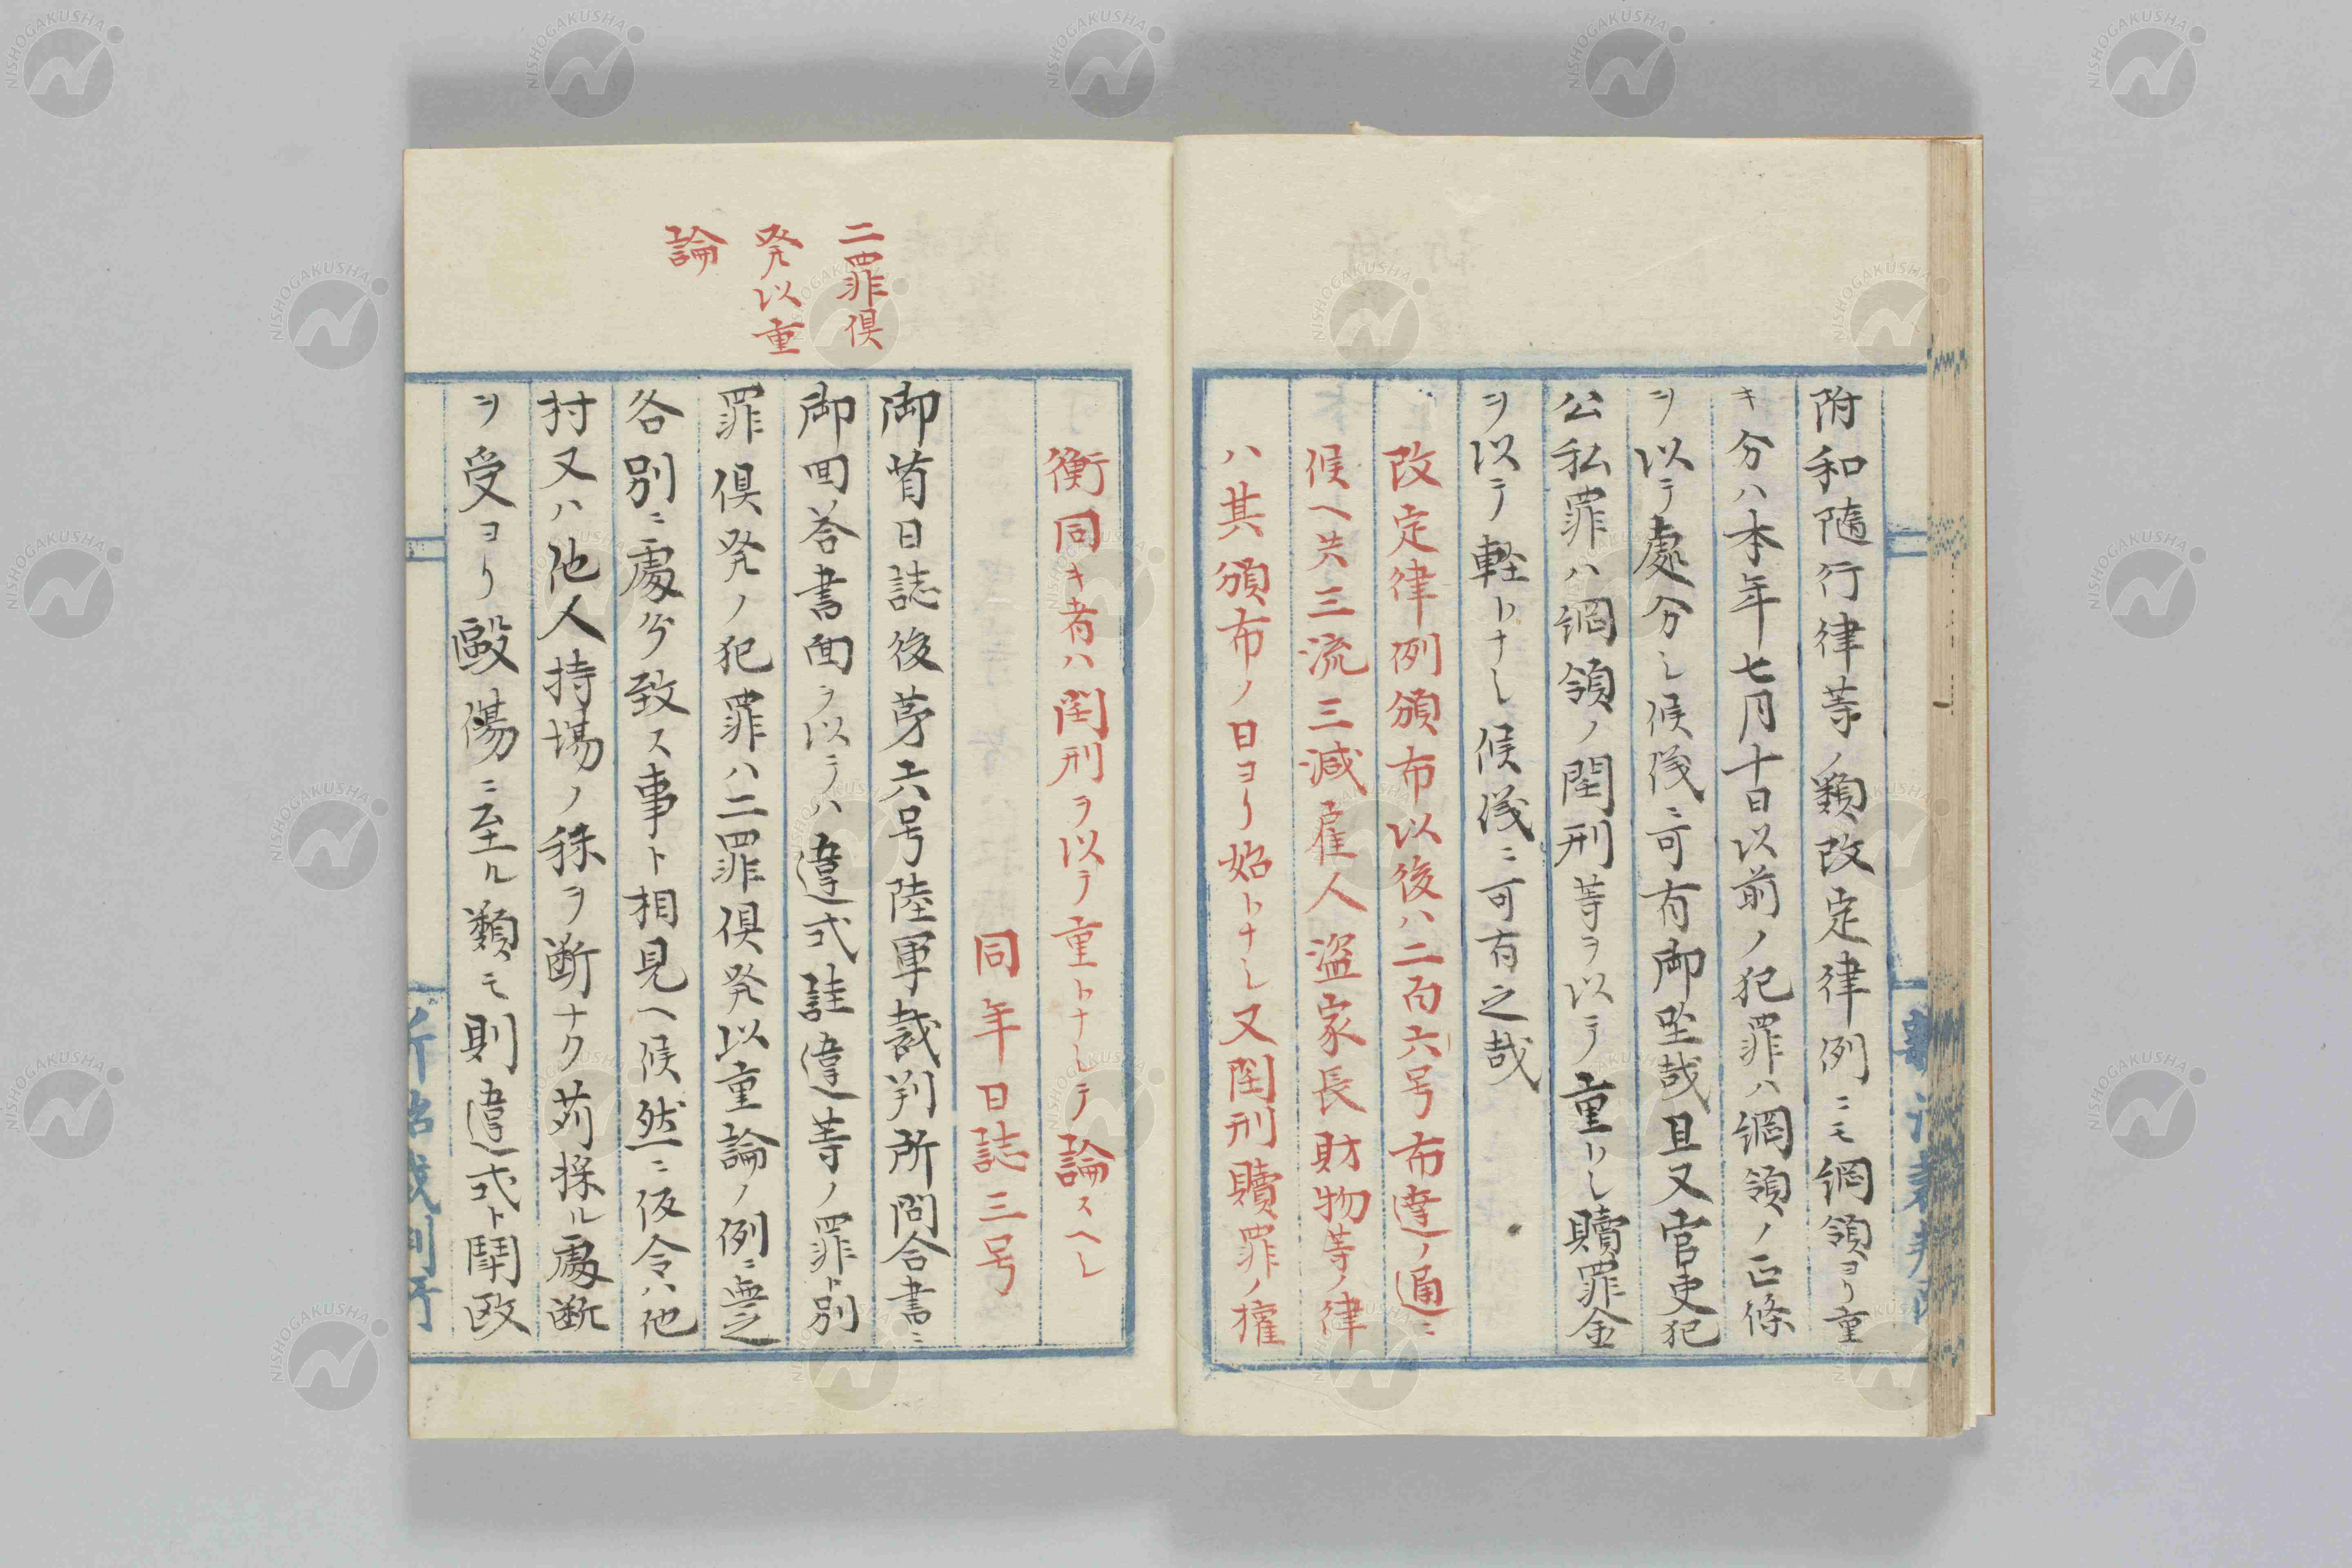 附和隨行律等ノ類改定律例ニモ綱領ヨリ重
キ分ハ本年七月十日以前ノ犯罪ハ綱領ノ正條
ヲ以テ處分シ候儀ニ可有御坐哉且又官吏犯
公私罪ハ綱領ノ閏刑等ヲ以テ重トシ贖罪金
ヲ以テ軽トナシ候儀ニ可有之哉
改定律例頒布以後ハ二百六号布達ノ通ニ
候ヘ共三流三減雇人盗家長財物等ノ律
ハ其頒布ノ日ヨリ始トナシ又閏刑贖罪ノ権
衡同キ者ハ閏刑ヲ以テ重トナシテ論スヘシ
同年日誌三号
二罪倶
発以重
論
御省日誌後茅六号陸軍裁判所問合書ニ
御回答書面ヲ以テハ違式詿違等ノ罪ト別
罪倶発ノ犯罪ハ二罪倶発以重論ノ例ニ無之
各別ニ處分致ス事ト相見ヘ候然ニ仮令ハ他
村又ハ他人持場ノ秣ヲ断ナク苅採ル處断
ヲ受ヨリ毆傷ニ至ル類モ則違式ト鬪毆
NISHOGAKUSHA